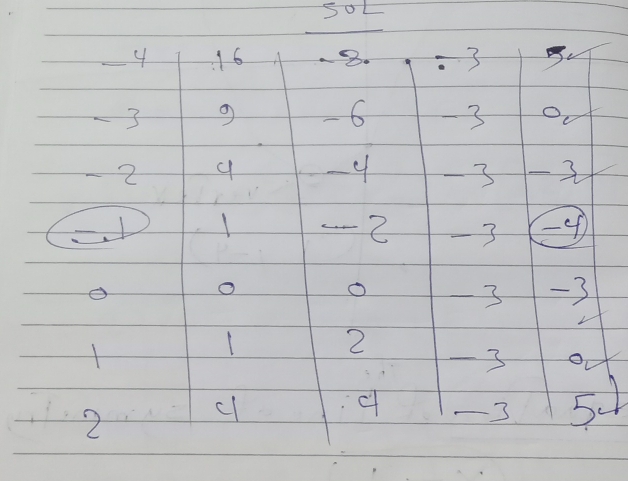 SOL
-4 16 -8 -3 5
-3 9 -6 -3 0
-2 4 -4 -3 -3
-1 1 -2 -3 -4
0 0 0 -3 -3
1 1 2 -3 0
2 4 4 -3 5